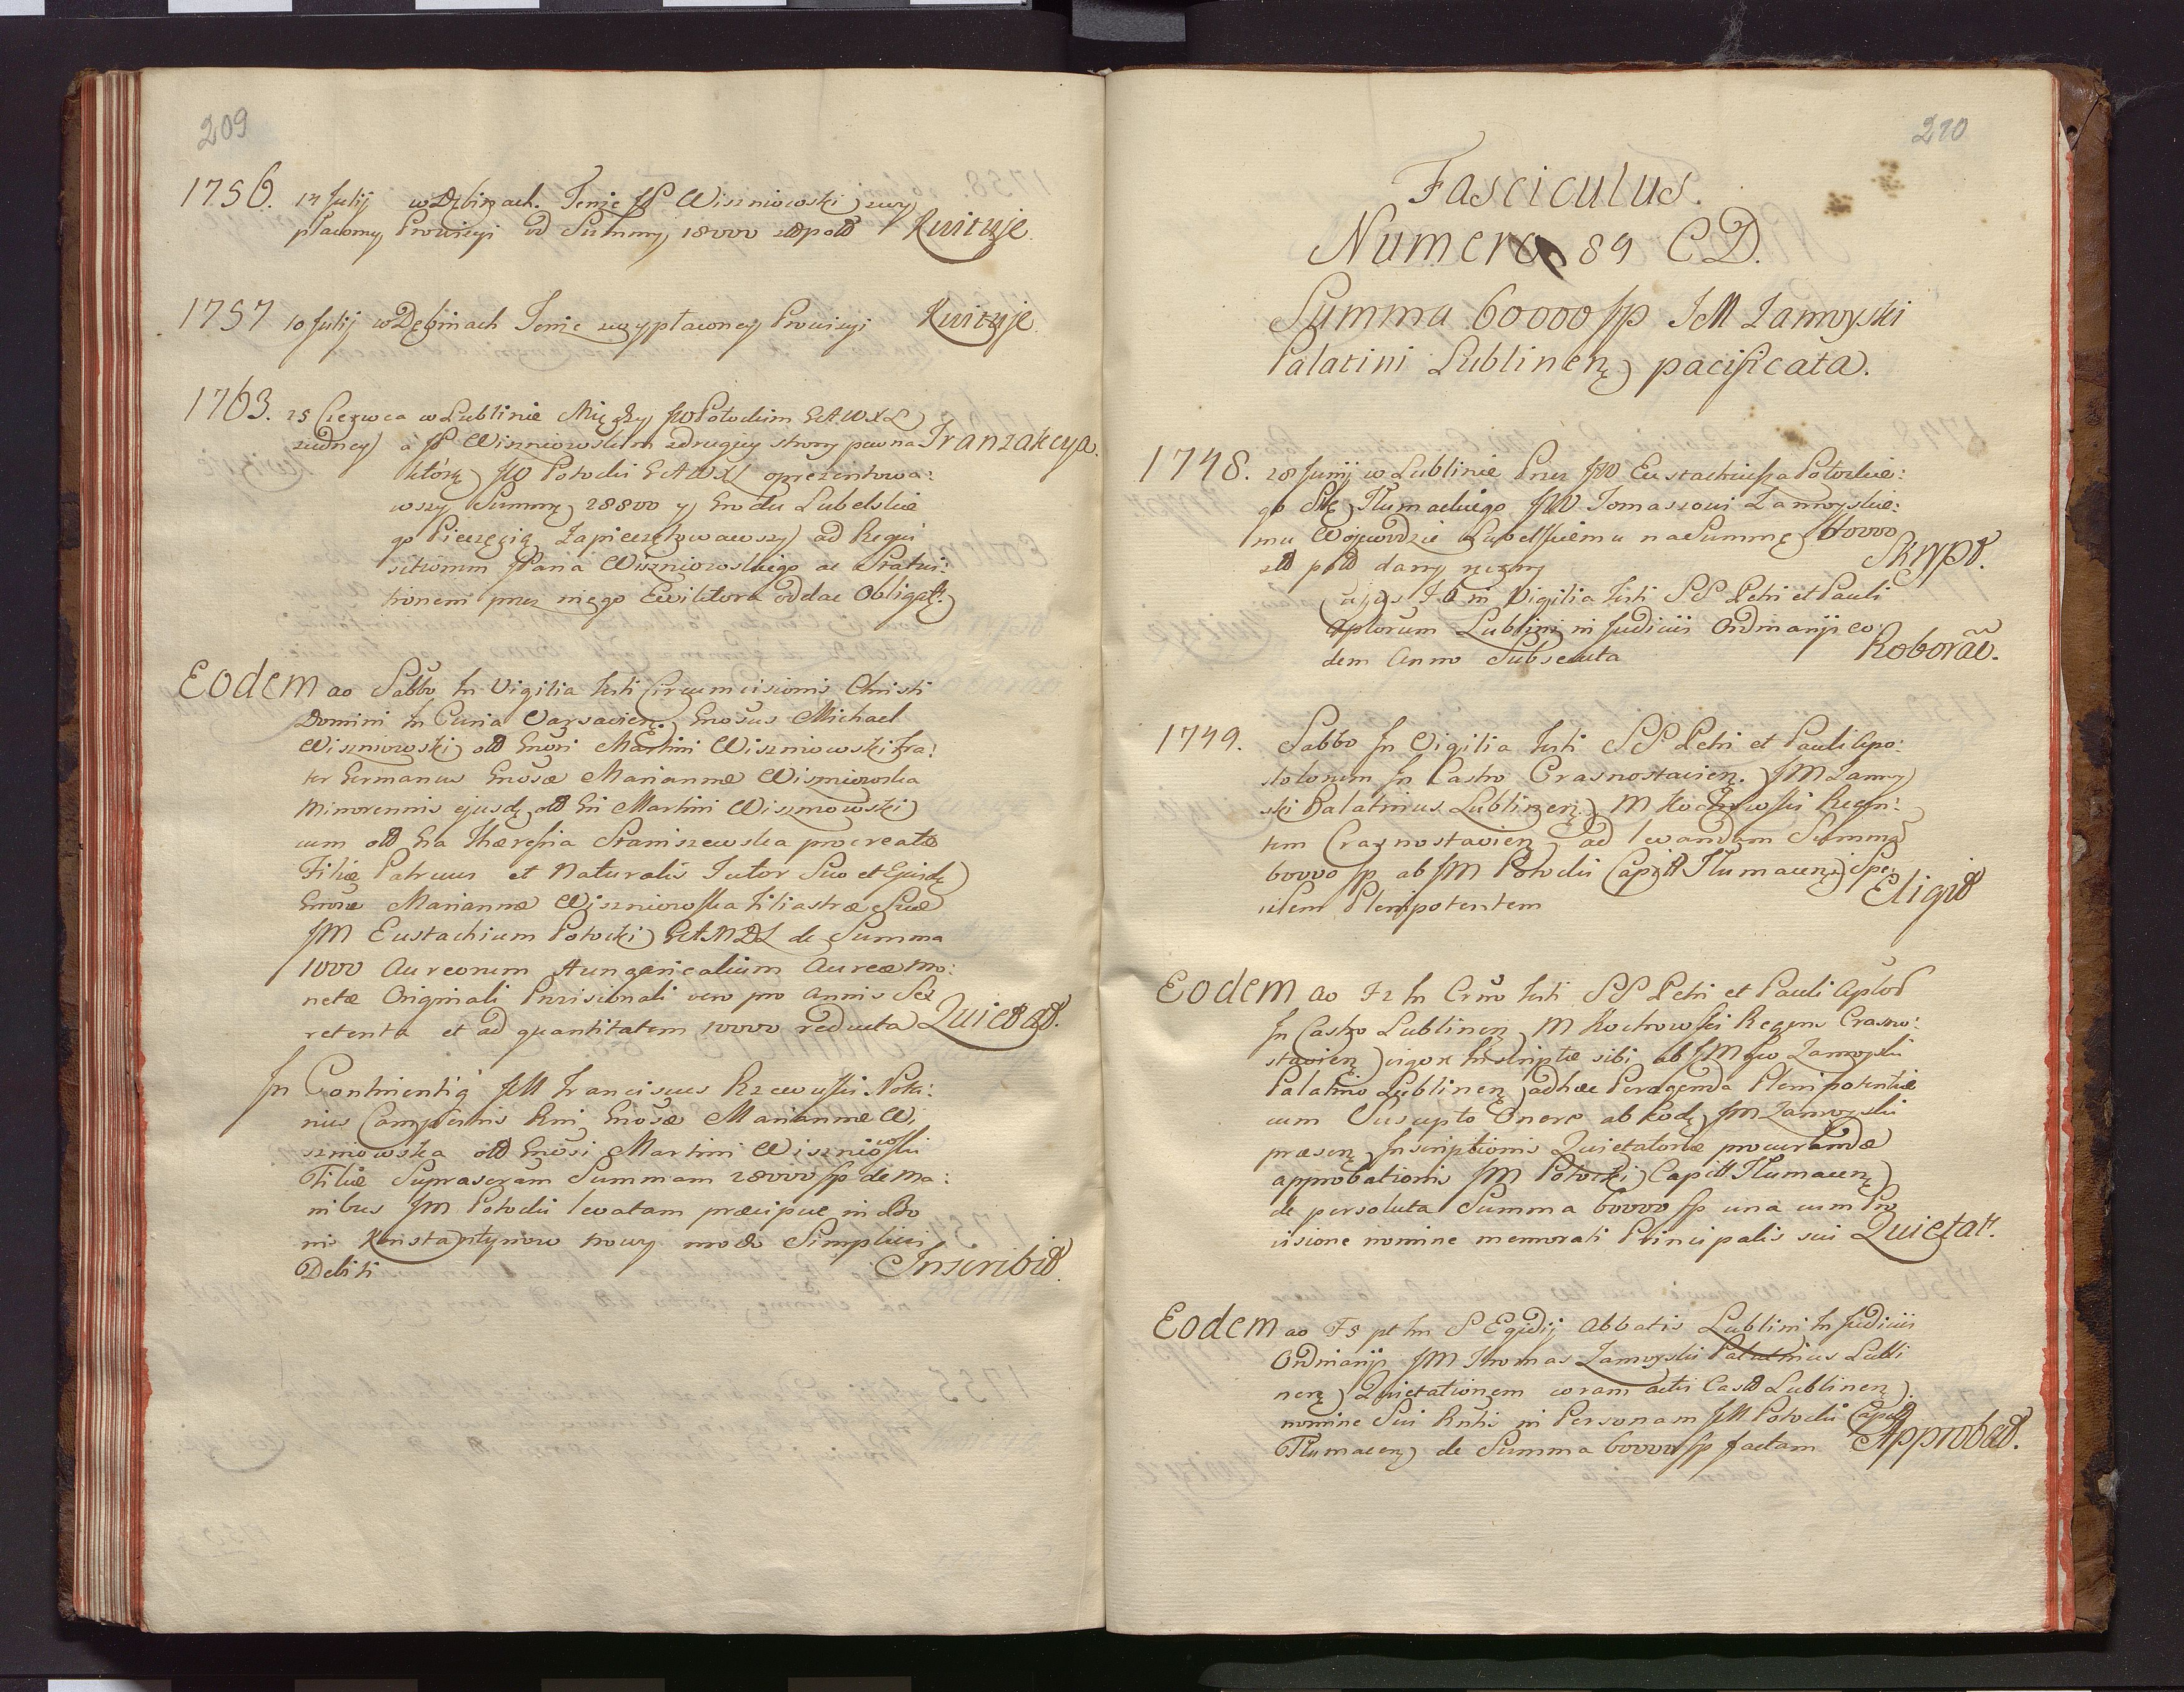 209
1756. 14 Julij w Dębinach. Tenże JP Wiszniowski zwy
płaconey Prowizyi od Summy 18000 złłpoll Kwituje.
1757 10 Julij w Dębinach Tenże zwypłaconey Prowizyi Kwituje.
1763. 25 Czerwca w Lublinie Między JW Potockim GAWXL
zedney a JP Wiszniowskim zdrugiey strony pewna Tranzakcya.
którą JW Potocki GAWXL oprezentowa:
wszy Summę 28800 y Grodu Lubelskie
go Pieczęcią Zapieczętowawszy ad Requi
sitionem JPana Wiszniowskiego ac Statui:
tionem przez niego Ewiktora oddac Obligat.
Eodem ao Sabbo In Vigilia Festi Circumcisionis Christi
Domini In Curia Varsavien. Grosus Michael
Wiszniowski olt Grosi Martini Wiszniowski Fra:
ter Germanus Grosæ Mariannæ Wiszniowska
Minorennis ejusdę olt Gi Martini Wiszniowski
cum olt Gra Theresia Staniszewska procreatæ
Filiæ Patruus et Naturalis Tutor Suo et Ejusdę
Grosæ Mariannæ Wiszniowska Filiastræ Suæ
JM Eustachium Potocki GAMDL de Summa
1000 Aureorum Hungaricalium Aureæ Mo:
netæ Originali Provisionali vero pro Annis Sex
retenta et ad quantitatem 10000 reducta Quietat.
In Continentię JM Franciscus Rzewuski Nota:
rius Campestris Rni Grosæ Mariannæ Wi
szniowska olt Grosi Martini Wiszniowski
Filiæ Suprascram Summam 28000 fp de Ma:
nibus JM Potocki levatam præcipue in Bo
nis Konstantynow nowy modo Simplicis
Debiti Inscribit.
210
Fasciculus.
Numero 89 CD.
Summa 60000 fp JM Zamoyski
Palatini Lublineń pacificata.
1748. 28 Junij w Lublinie Przez JW Eustachiusza Potockie:
go Stę Tłumackiego JW Tomaszowi Zamoyskie:
mu Wojewodzie Lubelskiemu na Summę 60000
złł poll dany ręczny Skrypt.
Cujus Fa in Vigilia Festi SS Petri et Pauli
Aplorum Lublini in Judiciis Ordinarijs eo:
dem Anno Subsecuta Roborão.
1749. Sabbo In Vigilia Festi SS Petri et Pauli Apo:
stolorum In Castro Crasnostavień. JM Zamoy
ski Palatinus Lublineń M Kochowski Regen:
tem Crasnostavień ad levandam Summã
60000 fp ab JM Potocki Capit Tłumaceń Spe
cilem Plenipotentem Eligit
Eodem ao F2 In Crno Festi SS Petri et Pauli Aplor
In Castro Lublineń M Kochowski Regens Crasno:
stavień vigore Inscriptæ sibi ab JM Gro Zamoyski
Palatino Lublineń adhæc Peragenda Plenipotentiæ
cum Suscepto Onere ab Eodę JM Zamoyski
præseń Inscriptionis Quietatoriæ procurandæ
approbationis JM Potocki Capitt Tłumaceń
de persoluta Summa 60000 fp una cum Pro
visione nomine memorati Principalis sui Quietat.
Eodem ao F5 pt Fm S Egidij Abbatis Lublini In Judiciis
Ordinarijs JM Thomas Zamoyski Palatinus Lubli
neń Quietationem coram actis Cast Lublineń
nomine Sui Ristis in Personam JM Potocki Capitt
Tłumaceń de Summa 60000 fp factam Approbat.